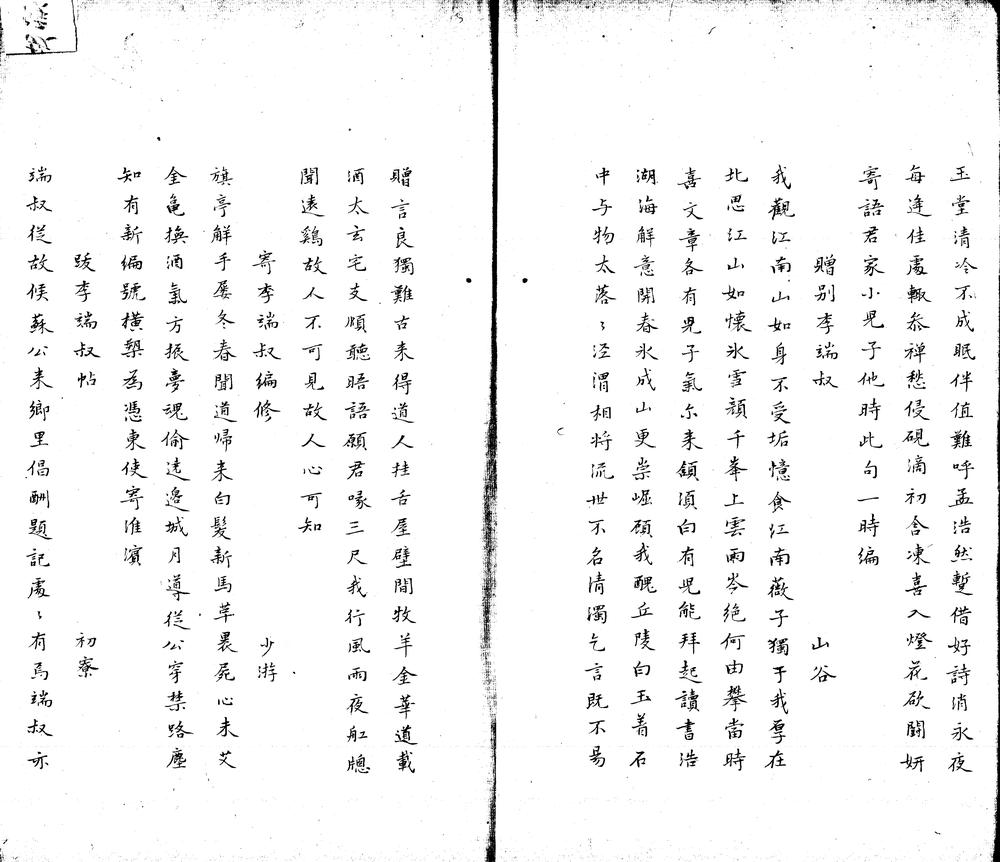 玉堂清冷不成眠伴值難呼孟浩然蹔借好詩消永夜
每逢佳處輒叅禪愁侵硯滴初含凍喜入燈花欲鬪妍
寄語君家小児子他時此句一時編
贈别李端叔 山谷
我觀江南山如身不受垢憶食江南薇子獨于我厚在
北思江山如懷氷雪顔千峯上雲雨岑絶何由攀當時
喜文章各有児子氣尓来頷湏白有児能拜起讀書浩
湖海解意開春氷成山更崇崛顧我醜丘陵白玉著石
中与物太落〻涇渭相将流世不名清濁乞言既不易
贈言良獨難古来得道人挂舌屋壁間牧羊金華道載
酒太玄宅支頥聽晤語願君喙三尺我行風雨夜舡牕
聞遠鷄故人不可見故人心可知
寄李端叔編修 少游
旗亭解手屡冬春聞道帰来白髪新馬革褁屍心未艾
金亀換酒氣方振夢魂偷逺邉城月導從公穿禁路塵
知有新編號橫槊為憑東使寄淮濱
跋李端叔帖 初寮
端叔従故候蘇公来鄉里倡酬題記處〻有焉端叔亦